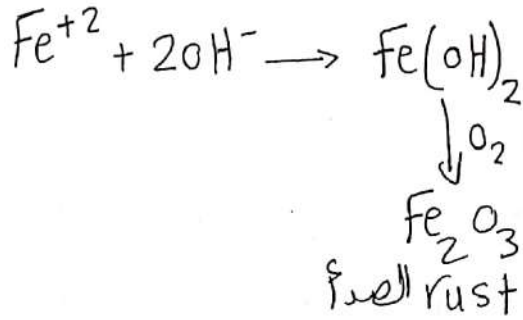 Fe⁺² + 2OH⁻ → Fe(OH)₂
↓ O₂
Fe₂O₃
الصدأ rust